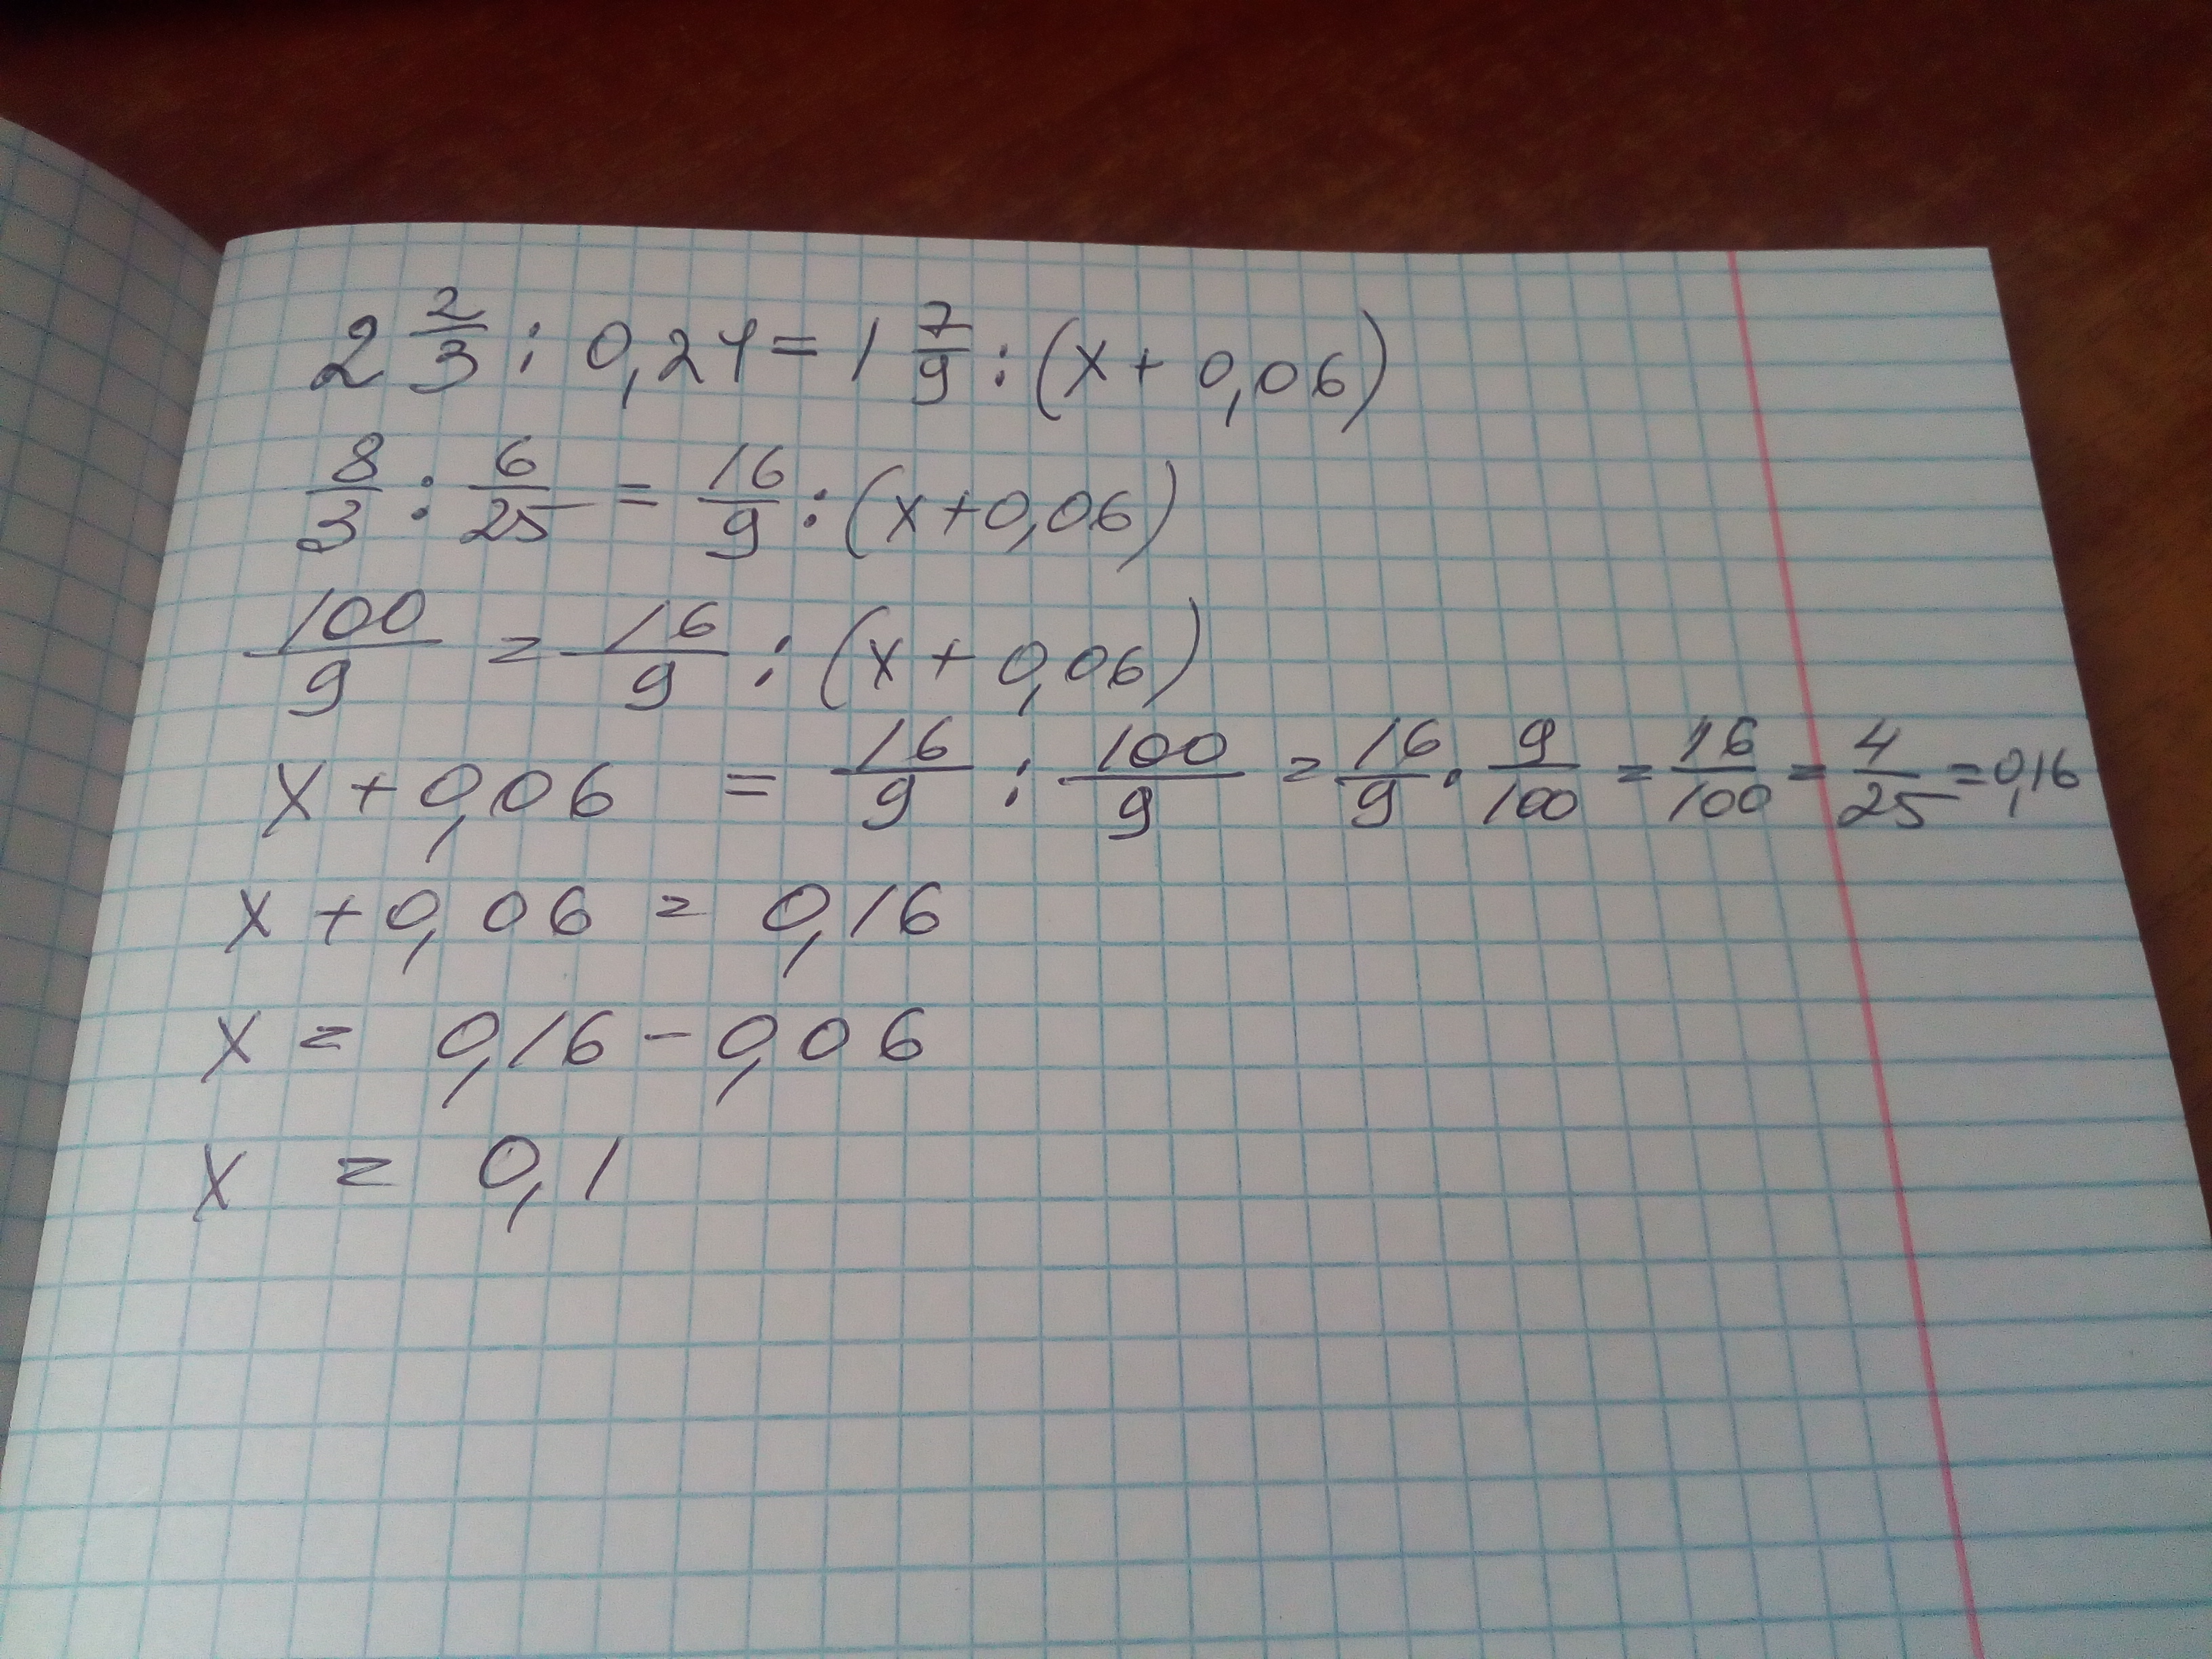 2 2/3 : 0,24 = 1 7/9 : (x + 0,06)
8/3 : 6/25 = 16/9 : (x+0,06)
100/9 = 16/9 : (x + 0,06)
x + 0,06 = 16/9 : 100/9 = 16/9 · 9/100 = 16/100 = 4/25 = 0,16
x + 0,06 = 0,16
x = 0,16 - 0,06
x = 0,1